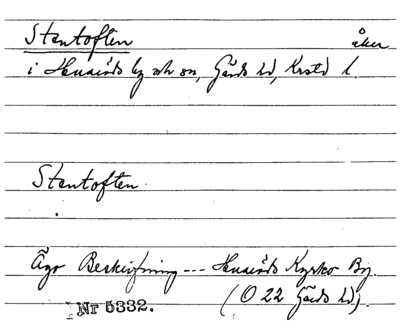 Stentoften åker
i Huaröds by och sn, Gärds hd, Krstd l.
Stentoften.
Ägo Beskrifning --- Huaröds Kyrko By.
(O 22 Gärds hd).
Nr 5332.